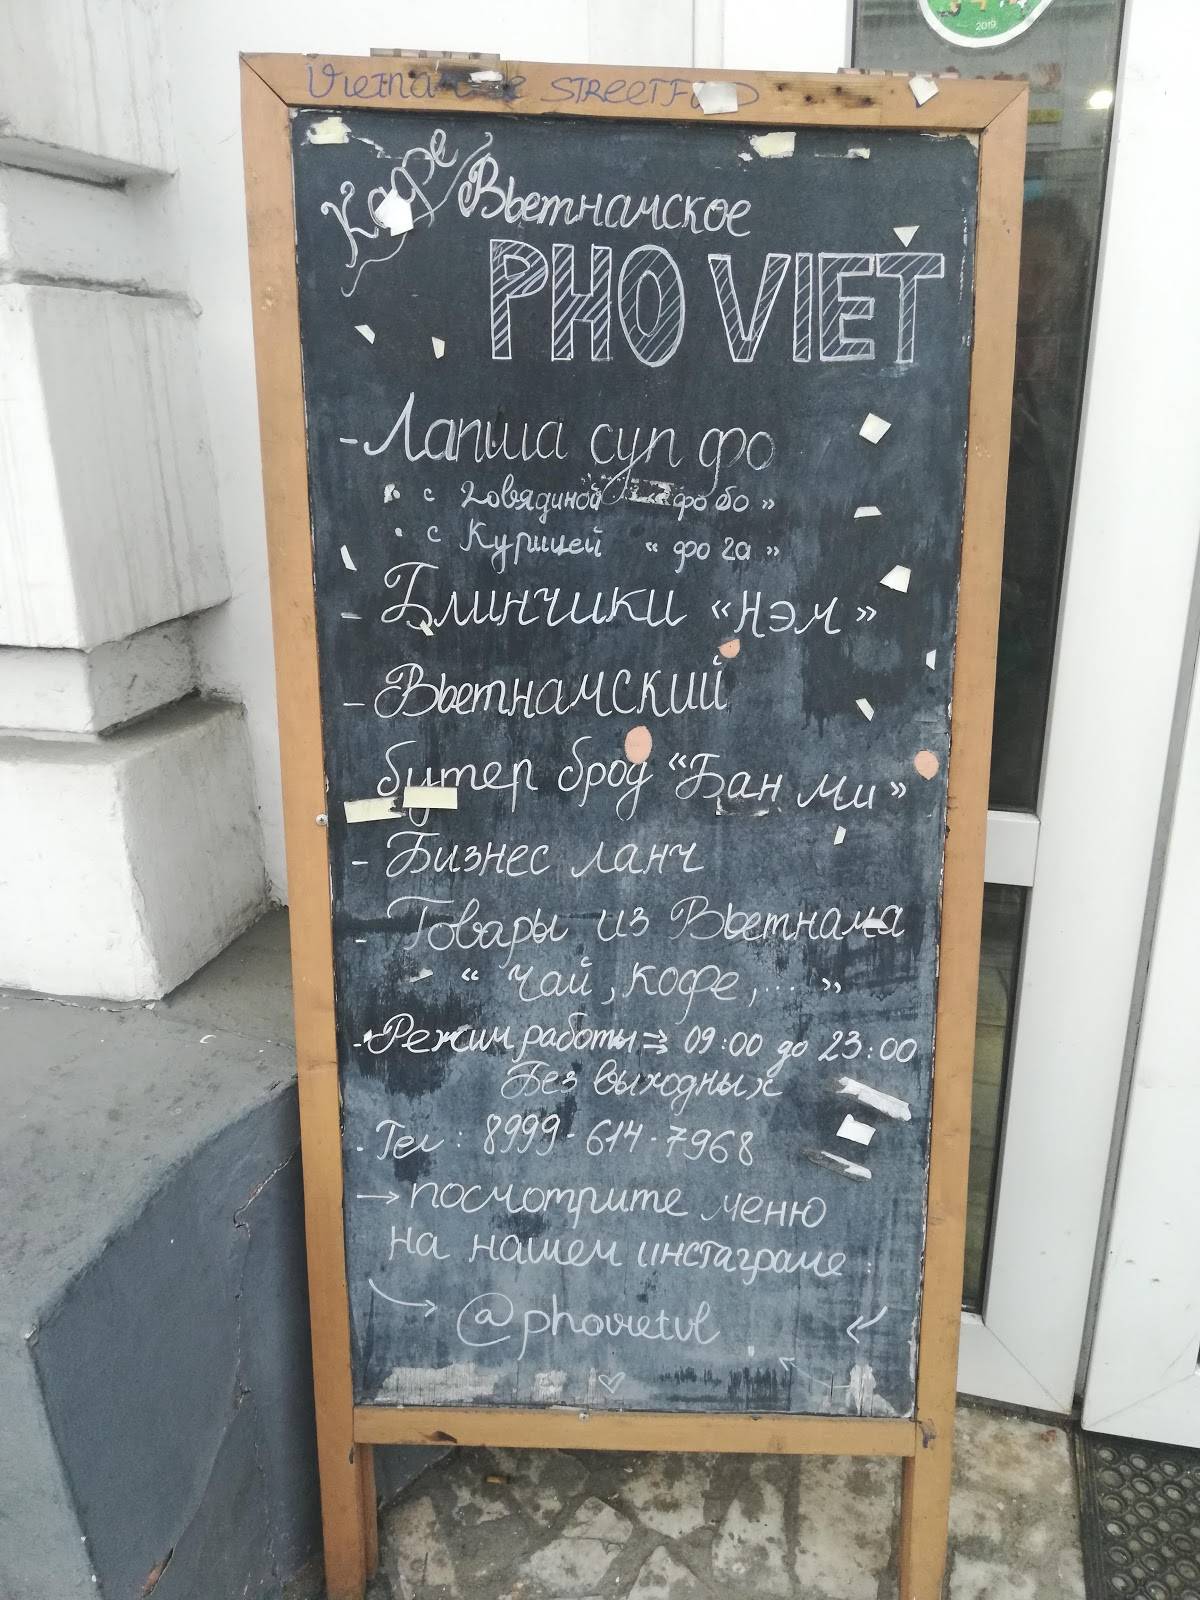 Vietnamese STREETFOOD
2019
Кафе Вьетнамское
PHO VIET
- Лапша суп фо
• с говядиной « фо бо »
• с Курицей « фо га »
- Блинчики «нэм»
- Вьетнамский
бутер брод "Бан ми"
- Бизнес ланч
- Товары из Вьетнама
" чай, кофе, ... "
- Режим работы ⇒ 09:00 до 23:00
Без выходных
- Тел : 8999-614-7968
→ посмотрите меню
на нашем инстаграме :
→ @phovietvl
♡